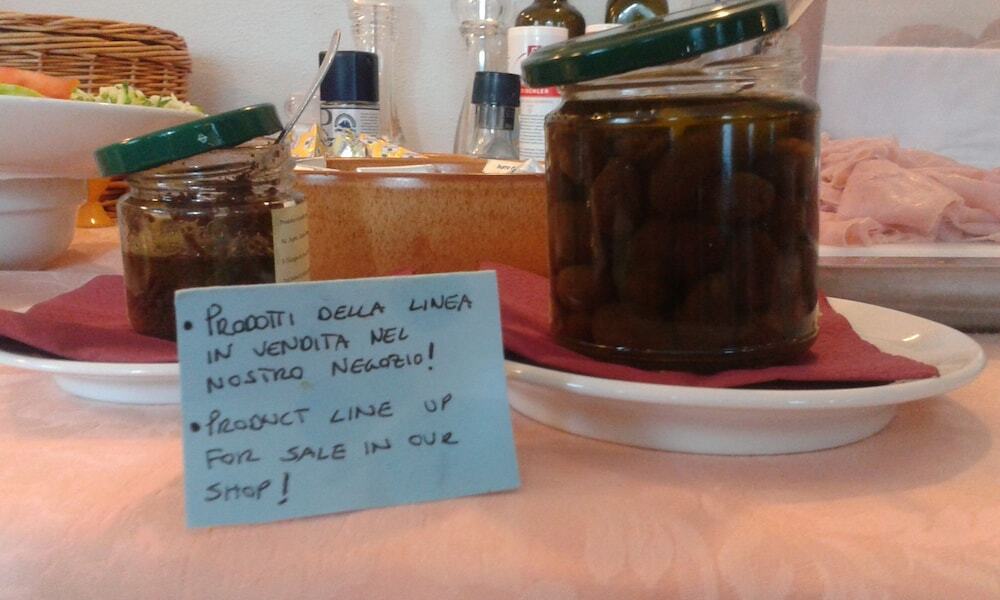 • PRODOTTI DELLA LINEA
IN VENDITA NEL
NOSTRO NEGOZIO!
• PRODUCT LINE UP
FOR SALE IN OUR
SHOP!